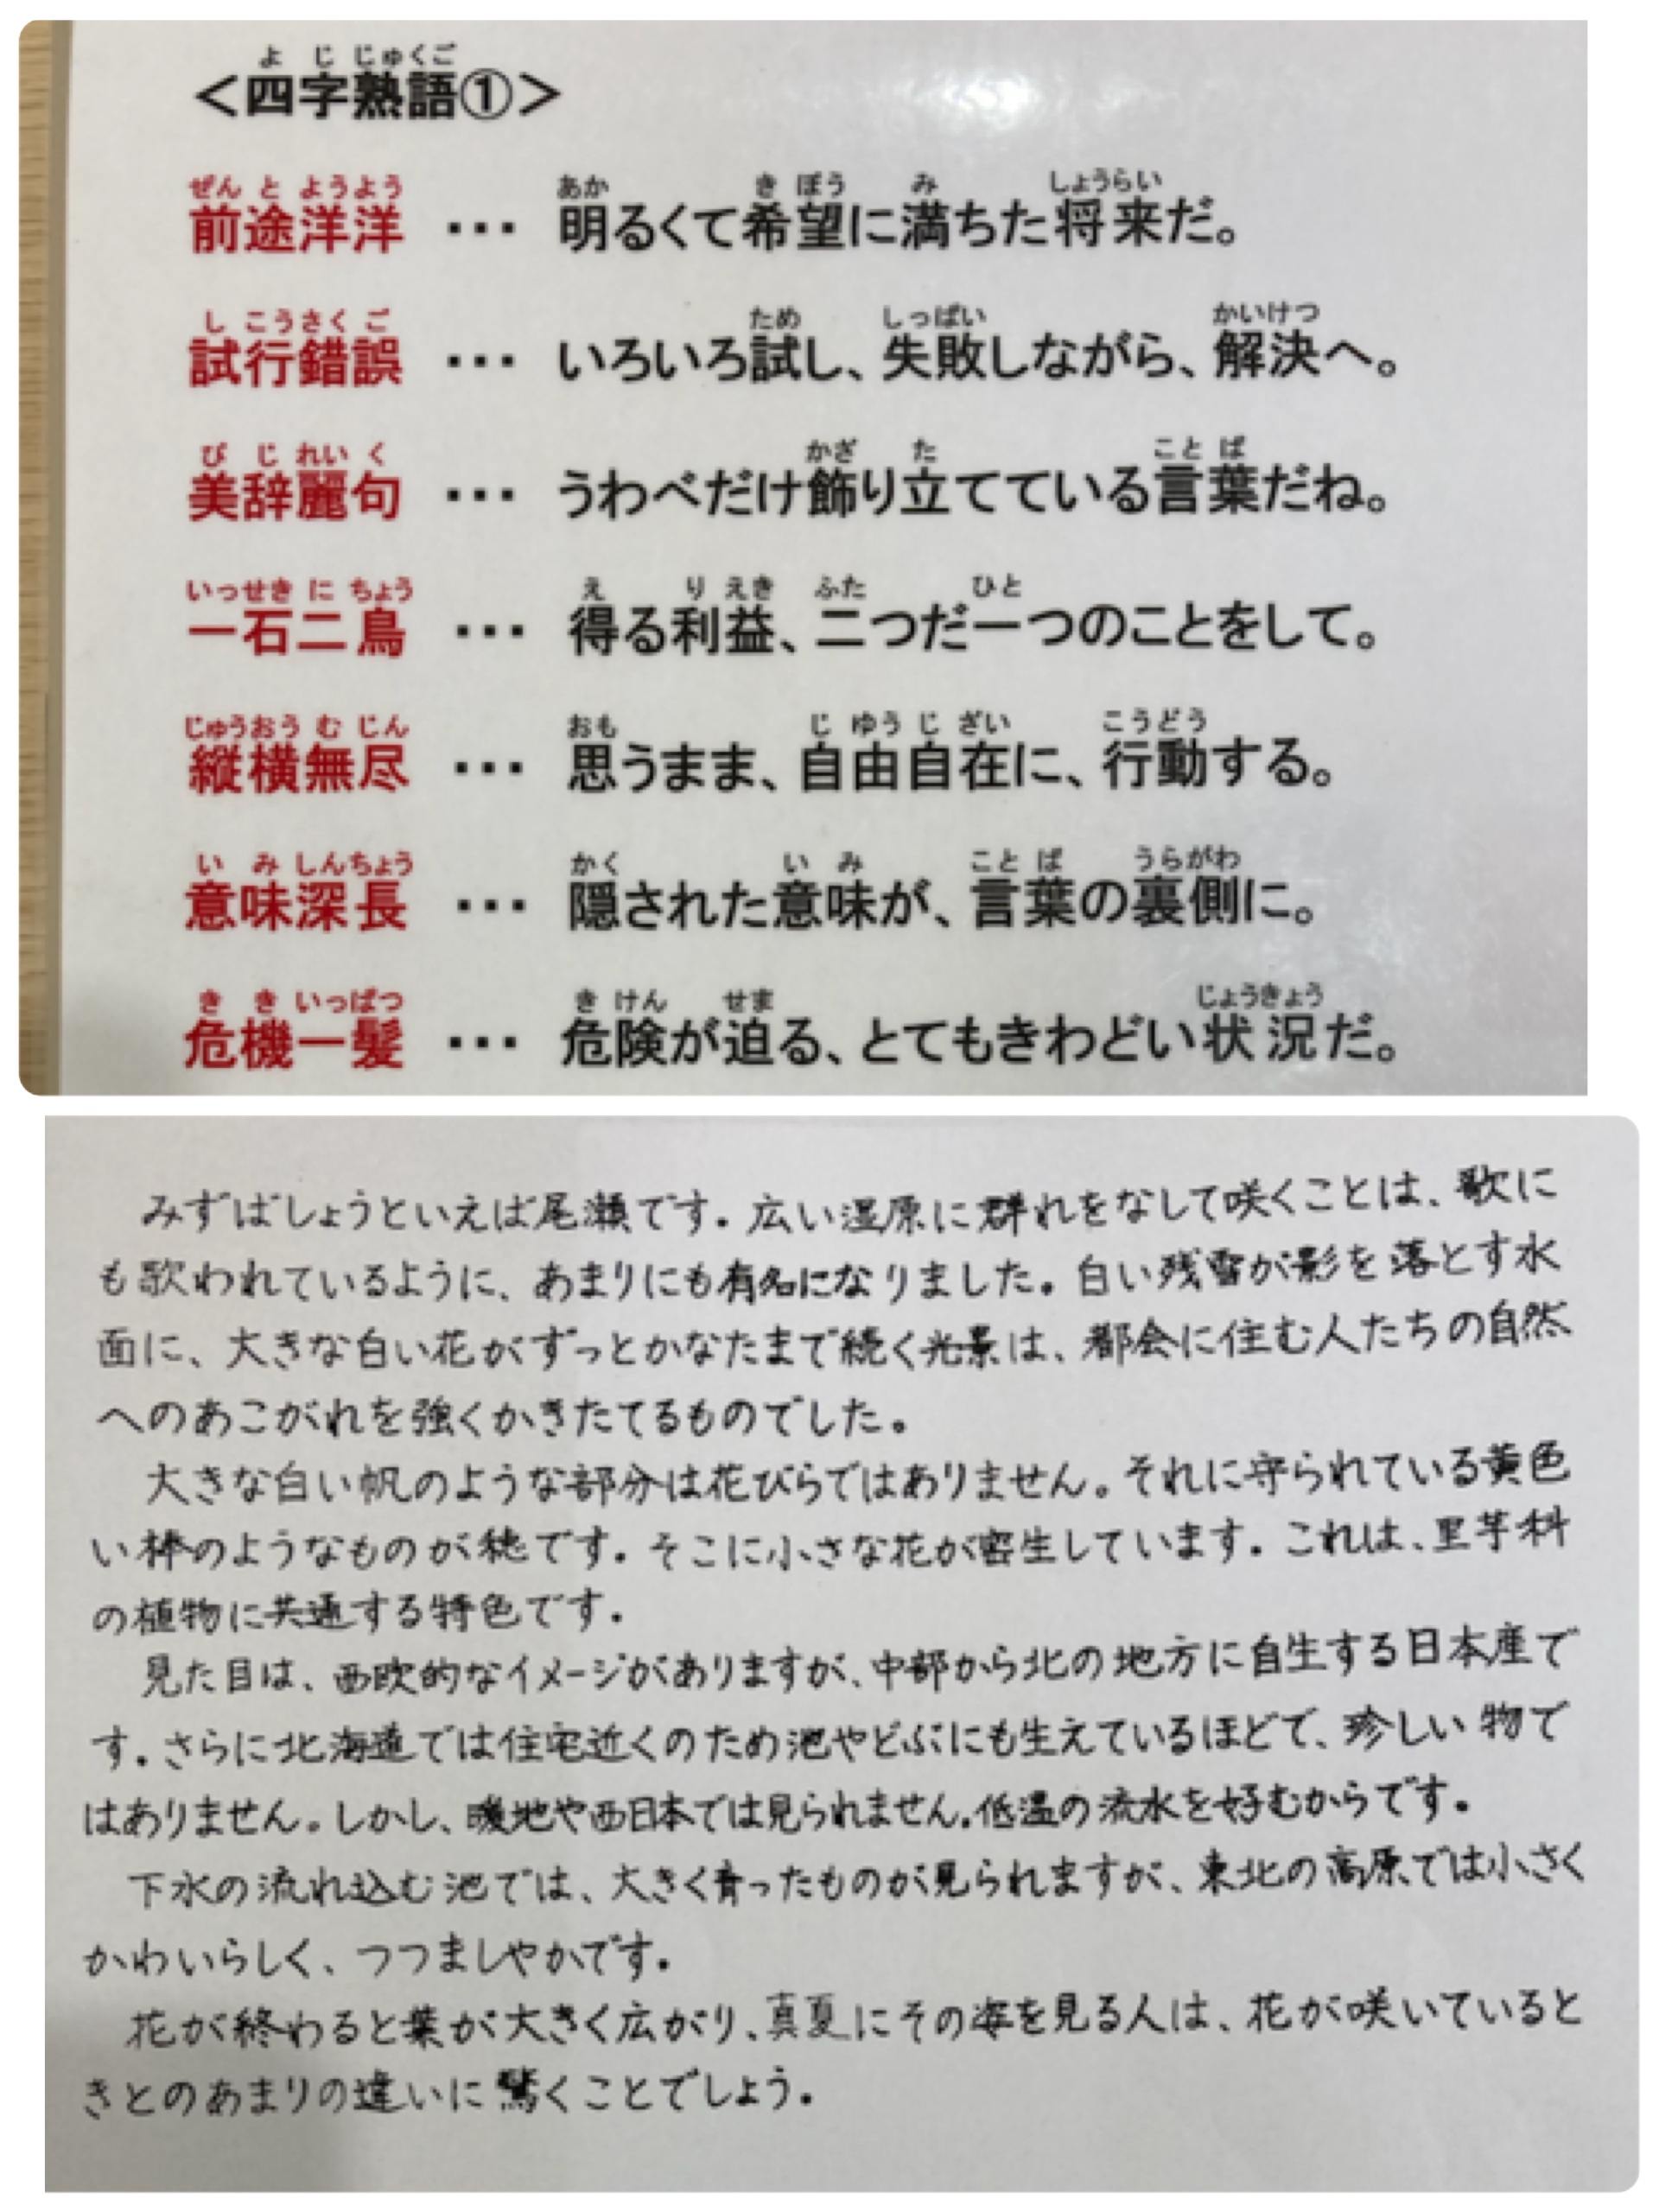 ＜四字熟語①＞
よ じ じゅくご
前途洋洋 … 明るくて希望に満ちた将来だ。
ぜん と ようよう あか き ぼう み しょうらい
試行錯誤 … いろいろ試し、失敗しながら、解決へ。
し こうさく ご ため しっぱい かいけつ
美辞麗句 … うわべだけ飾り立てている言葉だね。
び じ れい く かざ た こと ば
一石二鳥 … 得る利益、二つだ一つのことをして。
いっせき に ちょう え り えき ふた ひと
縦横無尽 … 思うまま、自由自在に、行動する。
じゅうおう む じん おも じ ゆう じ ざい こうどう
意味深長 … 隠された意味が、言葉の裏側に。
い み しんちょう かく い み こと ば うらがわ
危機一髪 … 危険が迫る、とてもきわどい状況だ。
き き いっぱつ き けん せま じょうきょう
みずばしょうといえば尾瀬です。広い湿原に群れをなして咲くことは、歌に
も歌われているように、あまりにも有名になりました。白い残雪が影を落とす水
面に、大きな白い花がずっとかなたまで続く光景は、都会に住む人たちの自然
へのあこがれを強くかきたてるものでした。
大きな白い帆のような部分は花びらではありません。それに守られている黄色
い棒のようなものが穂です。そこに小さな花が密生しています。これは、里芋科
の植物に共通する特色です。
見た目は、西欧的なイメージがありますが、中部から北の地方に自生する日本産で
す。さらに北海道では住宅近くのため池やどぶにも生えているほどで、珍しい物で
はありません。しかし、暖地や西日本では見られません。低温の流水を好むからです。
下水の流れ込む池では、大きく育ったものが見られますが、東北の高原では小さく
かわいらしく、つつましやかです。
花が終わると葉が大きく広がり、真夏にその姿を見る人は、花が咲いていると
きとのあまりの違いに驚くことでしょう。